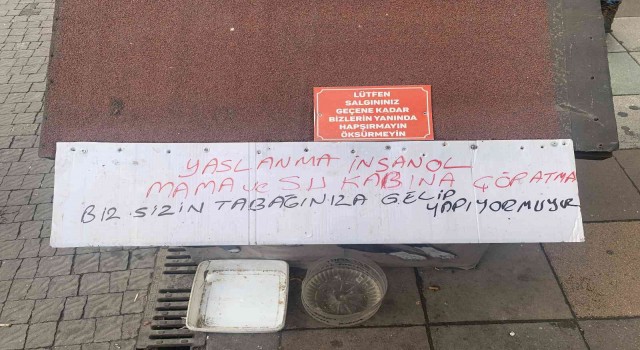 LÜTFEN
SALGININIZ
GEÇENE KADAR
BİZLERİN YANINDA
HAPŞIRMAYIN
ÖKSÜRMEYİN
YASLANMA İNSANOL
MAMA ve SU KABINA ÇÖP ATMA
BIZ SIZIN TABAĞINIZA GELIP
YAPIYORMUYUZ